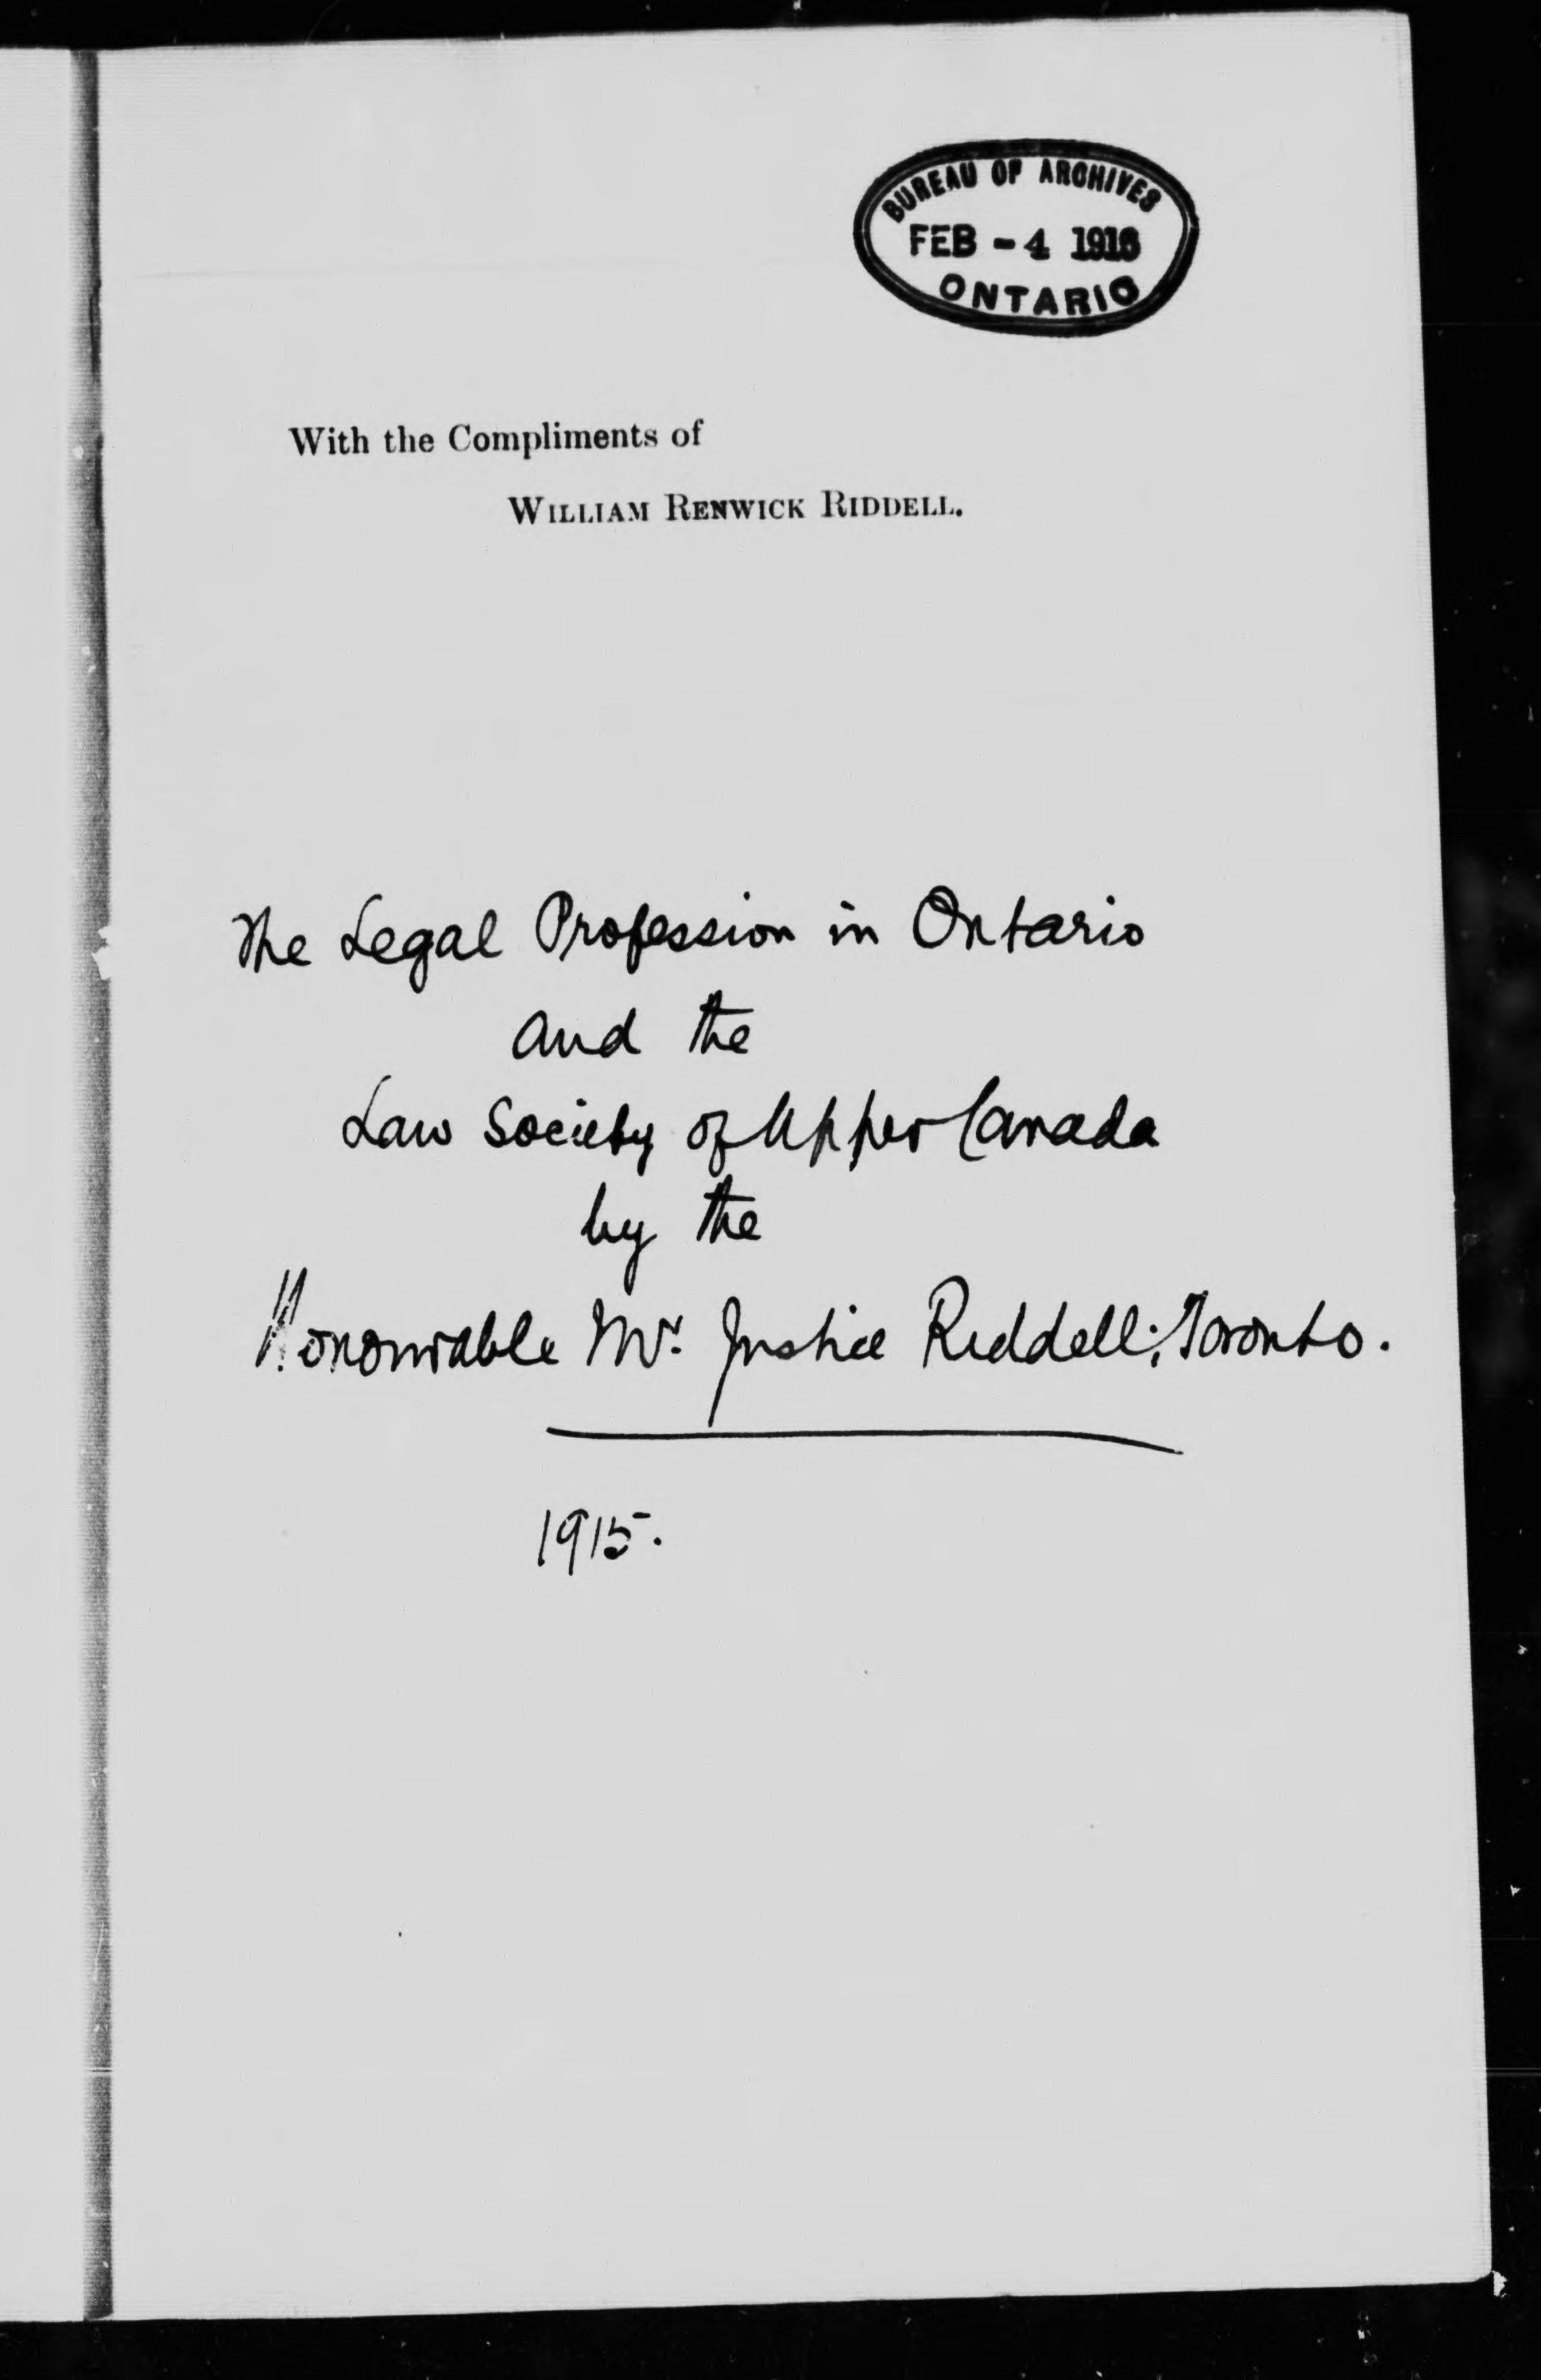 BUREAU OF ARCHIVES
FEB - 4 1916
ONTARIO
With the Compliments of
WILLIAM RENWICK RIDDELL.
The Legal Profession in Ontario
and the
Law Society of Upper Canada
by the
Honourable Mr. Justice Riddell; Toronto.
1915.